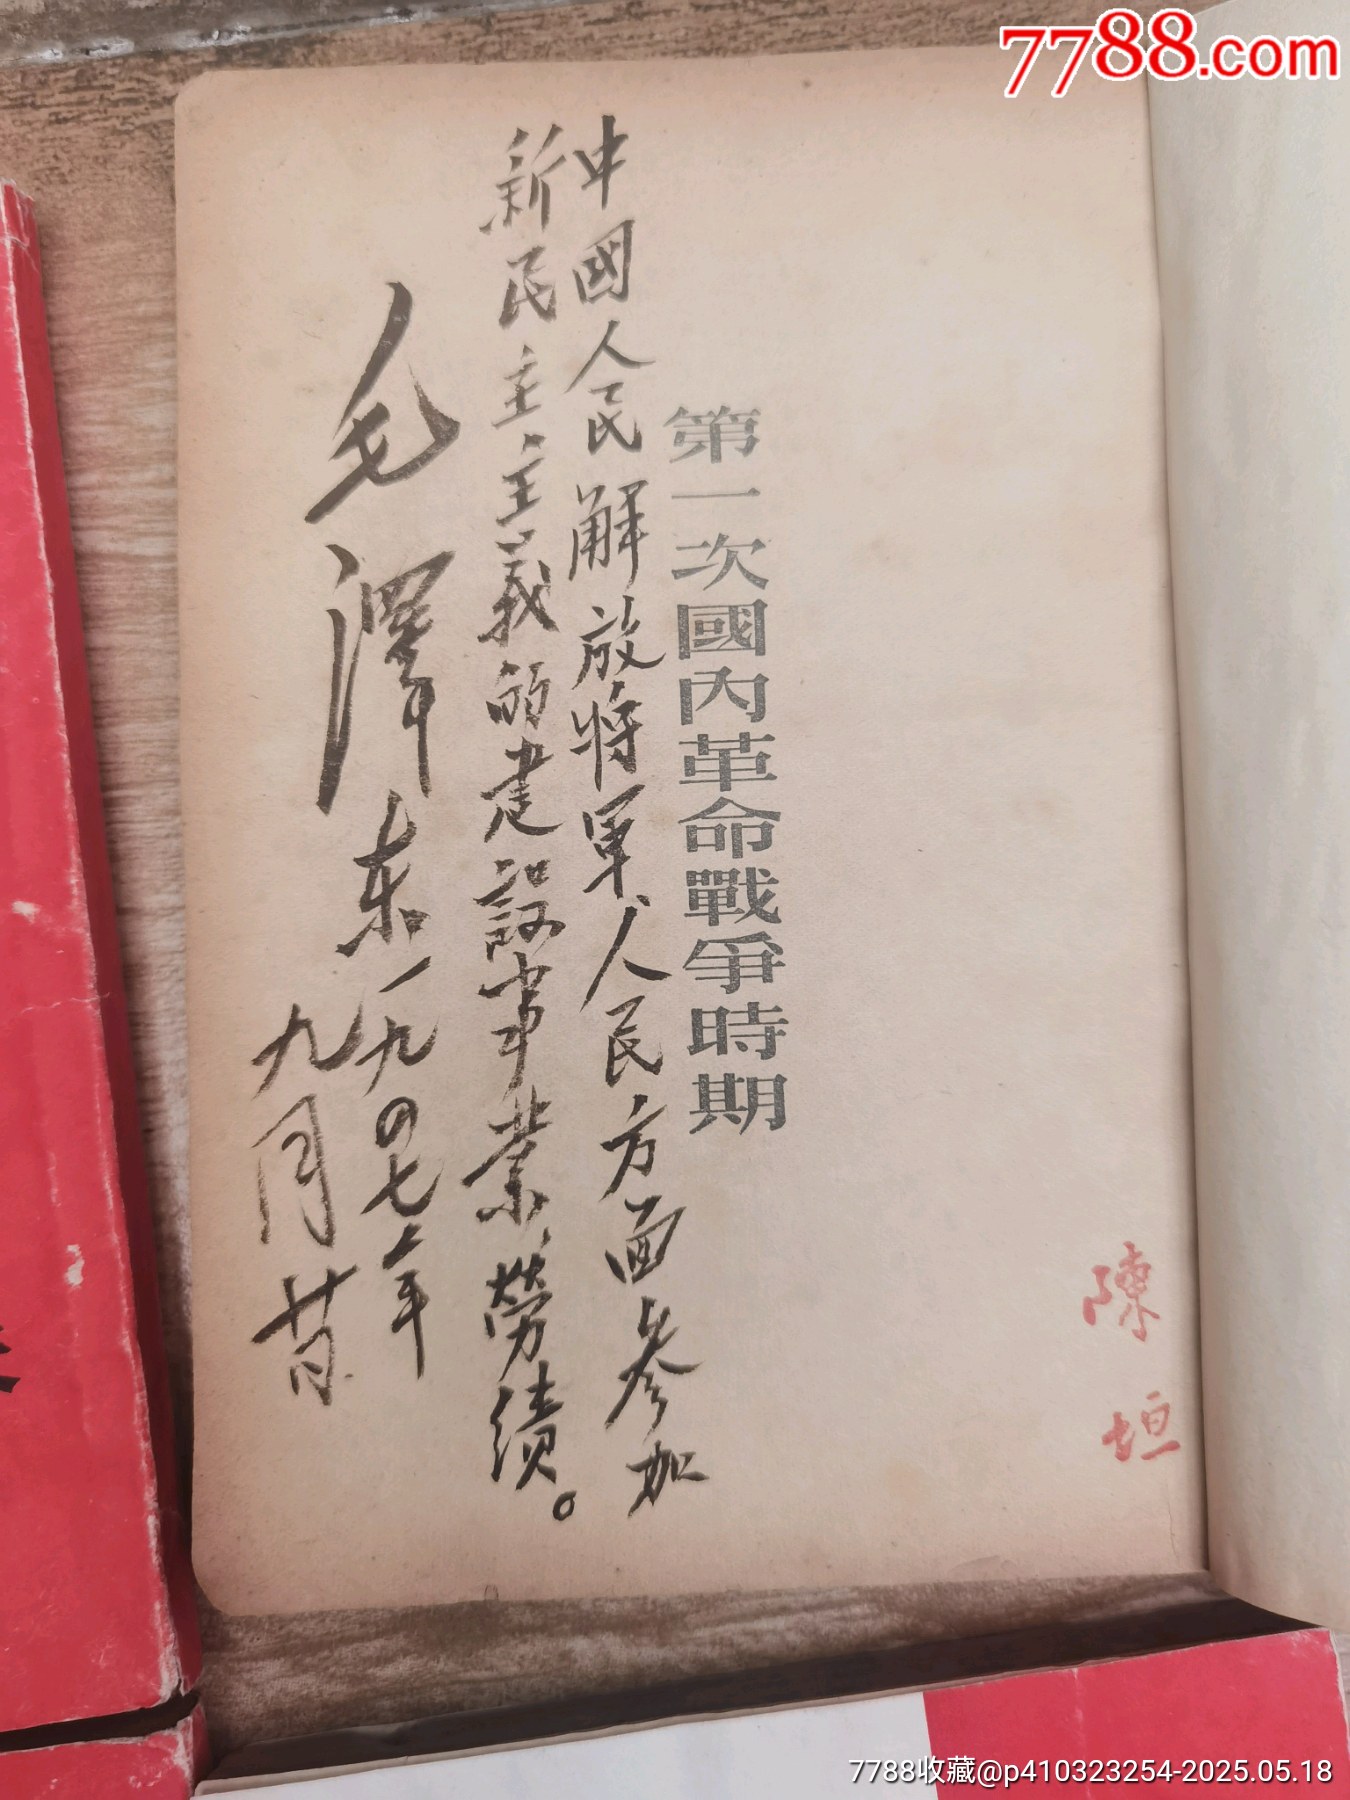 7788.com
第一次國內革命戰爭時期
中國人民解放将軍、人民方面參加
新民主主義的建設事業、勞績。
毛澤东一九四七年
九月廿日
陳垣
7788收藏@p410323254-2025.05.18